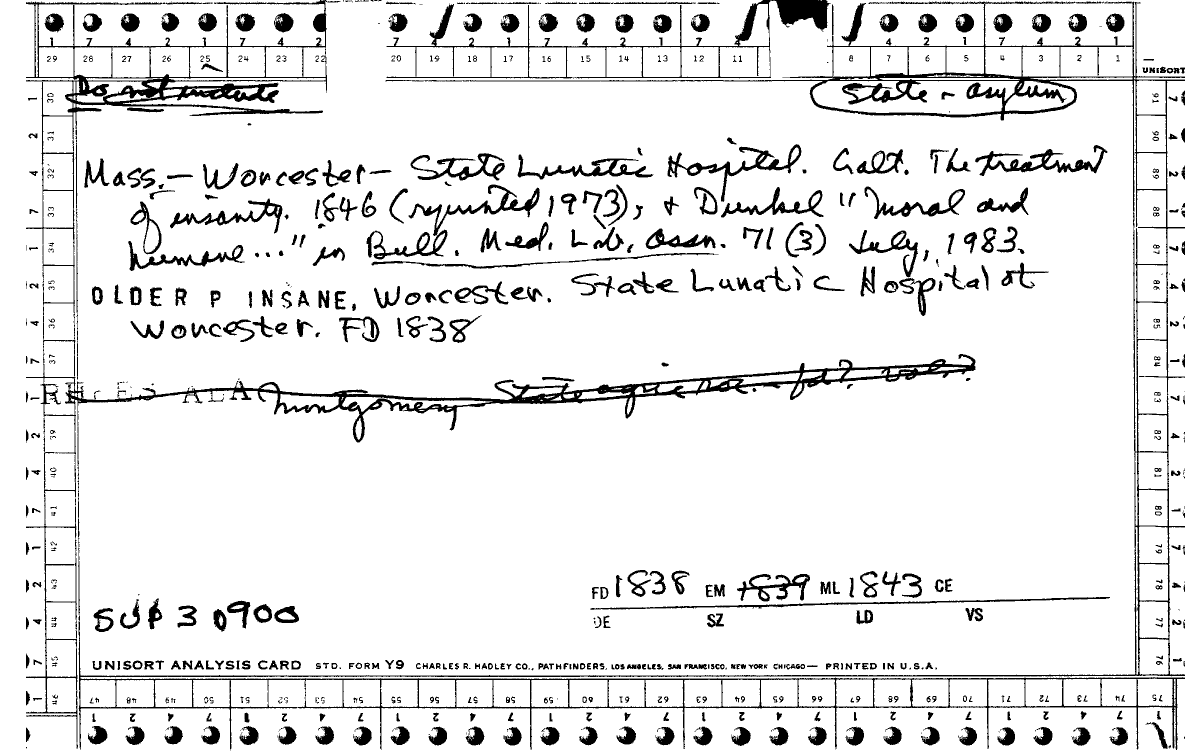 1 7 4 2 1 7 4 2 7 4 2 1 7 4 2 1 7 4 7 4 2 1 7 4 2 1
29 28 27 26 25 24 23 22 20 19 18 17 16 15 14 13 12 11 8 7 6 5 4 3 2 1
UNISORT
Do not include
State - asylum
Mass. - Worcester - State Lunatic Hospital. Galt. The treatment
of insanity. 1846 (reprinted 1973); + Dunkel "Moral and
humane..." in Bull. Med. Lib. Assn. 71 (3) July, 1983.
OLDER P INSANE, Worcester. State Lunatic Hospital at
Worcester. FD 1838
ALA Montgomery - State agric soc. - fd? vol.?
FD 1838 EM 1839 ML 1843 CE
SUP 3 0900
DE SZ LD VS
UNISORT ANALYSIS CARD STD. FORM Y9 CHARLES R. HADLEY CO., PATHFINDERS, LOS ANGELES, SAN FRANCISCO, NEW YORK CHICAGO — PRINTED IN U.S.A.
47 48 49 50 51 52 53 54 55 56 57 58 59 60 61 62 63 64 65 66 67 68 69 70 71 72 73 74 75
1 2 4 7 1 2 4 7 1 2 4 7 1 2 4 7 1 2 4 7 1 2 4 7 1 2 4 7